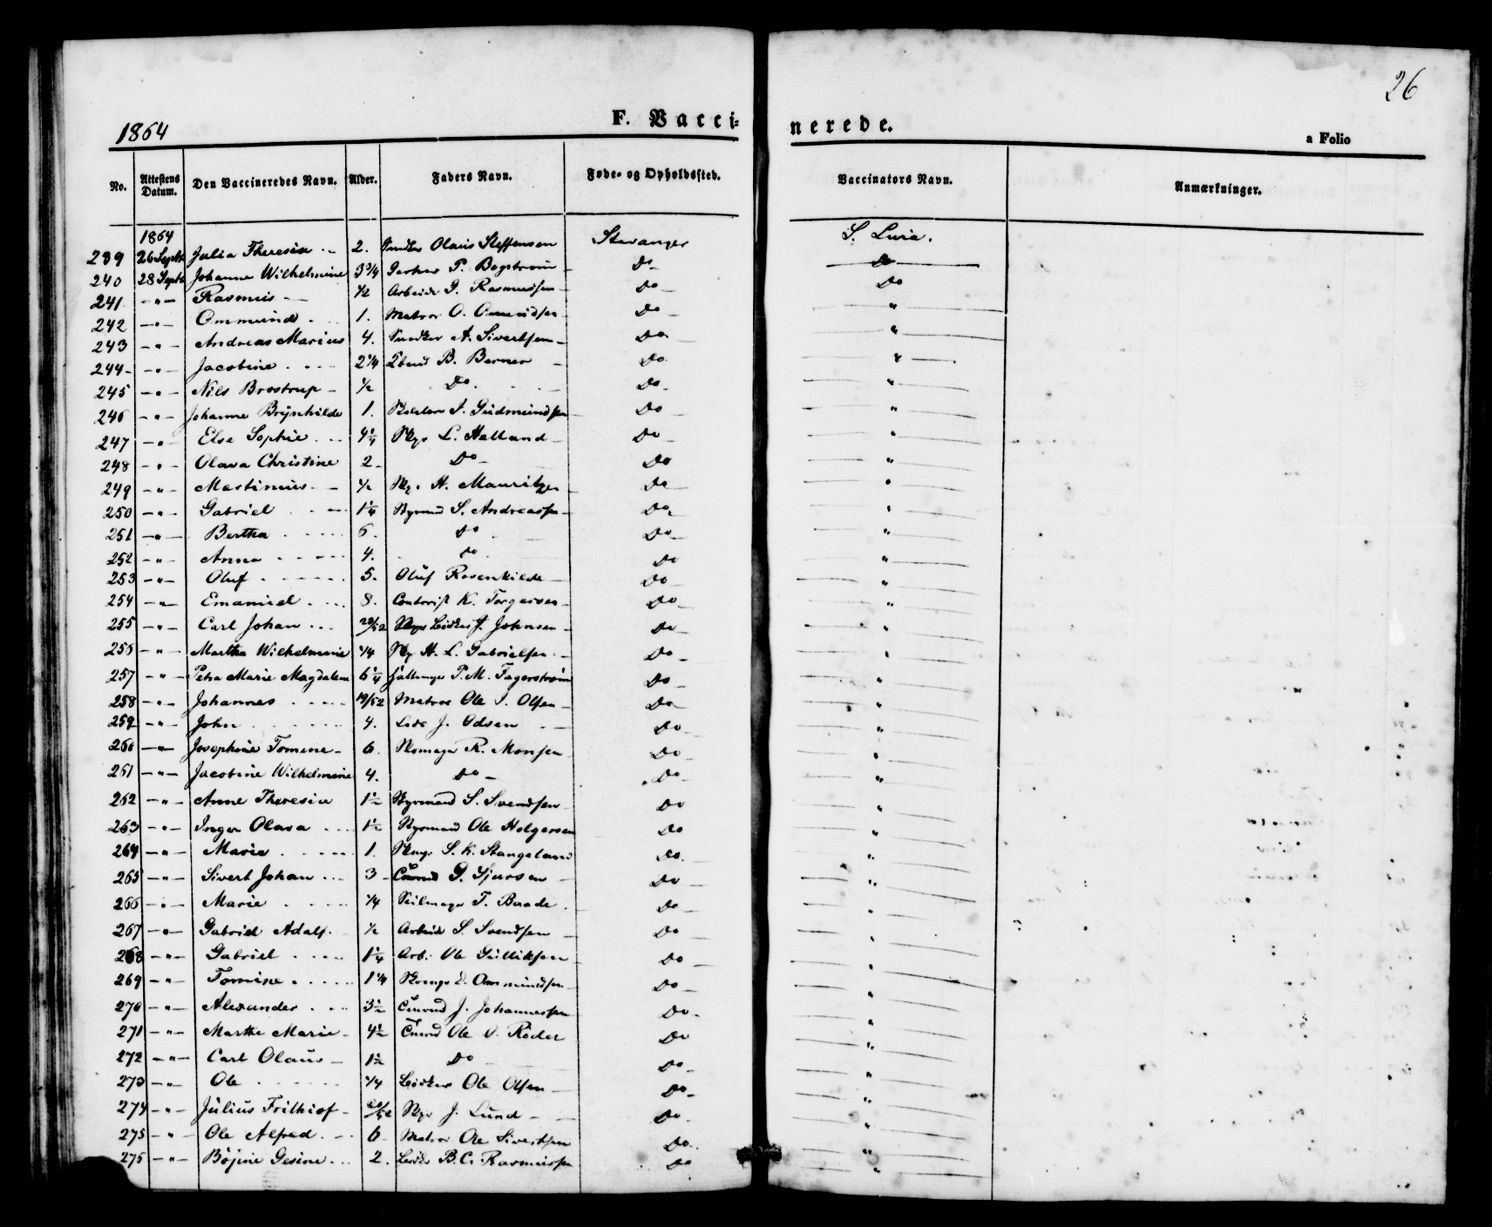 26
1864
F. Vaccinerede.
a Folio
No. Attestens Datum. Den Vaccineredes Navn. Alder. Faders Navn. Føde- og Opholdssted. Vaccinators Navn. Anmærkninger.
1864
239 26 Septb Julia Theresia 2. Olaus Steffensen Stavanger S. Lura.
240 28 Septb Johanne Wilhelmine 3 3/4 P. Bogstrøm Do Do
241 - " - Rasmus - 1/2 Arbeid G. Rasmussen Do Do
242 - " - Ommund 1. Matros O. Do "
243 - " - Andreas Marius 4. A. Sivertsen Do "
244 - " - Jacobine 2 1/4 B. Berner Do "
245 - " - Nils Brostrup 1/2 Do Do "
246 - " - Johanne Brynhilde 1. J. Gudmundsen Do "
247 - " - Else Sophie 4 1/4 L. Helland Do "
248 - " - Olava Christine 2 Do Do "
249 - " - Martinius 1/2 H. Mauritzen Do "
250 - " - Gabriel 1 1/4 Styrmd S. Andreassen Do "
251 - " - Bertha 6. Do Do "
252 - " - Anna 4. Do Do "
253 - " - Oluf 5. Oluf Rosenkilde Do "
254 - " - Emanuel 8. K. Torgersen Do "
255 - " - Carl Johan 20/52 J. Johnsen Do "
256 - " - Martha Wilhelmine 1/4 H. L. Gabrielsen Do "
257 - " - Petra Marie Magdalene 6 1/4 P. M. Fagerstrøm Do "
258 - " - Johannes 19/52 Matros Ole J. Olsen Do "
259 - " - John 4. J. Edsen Do "
260 - " - Josephine Tomine 6 Skomager R. Monsen Do "
261 - " - Jacobine Wilhelmine 4. Do Do "
262 - " - Anne Theresia 1 1/2 Styrmand S. Svendsen Do "
263 - " - Inger Olava 1 1/2 Styrmand Ole Holgersen Do "
264 - " - Marie 1. S. K. Stangeland Do "
265 - " - Sivert Johan 3 G. Sjursen Do "
266 - " - Marie 1/4 Seilmager T. Berade Do "
267 - " - Gabriel Adolf 1/2 Arbeid S. Svendsen Do "
268 - " - Gabriel 1 1/4 Arb. Ole Gulliksen Do "
269 - " - Tomine 1 1/4 Ommundsen Do "
270 - " - Alexander 3 1/2 J. Johannessen Do "
271 - " - Marthe Marie 4 1/2 Ole Do "
272 - " - Carl Olaus 1 1/2 Do Do "
273 - " - Ole 1/4 Ole Olsen Do "
274 - " - Julius Frithiof J. Lund Do "
275 - " - Ole Alfred 6 Matros Ole Sivertsen Do "
276 - " - Bøjine Gesine 2. B. C. Rasmussen Do "